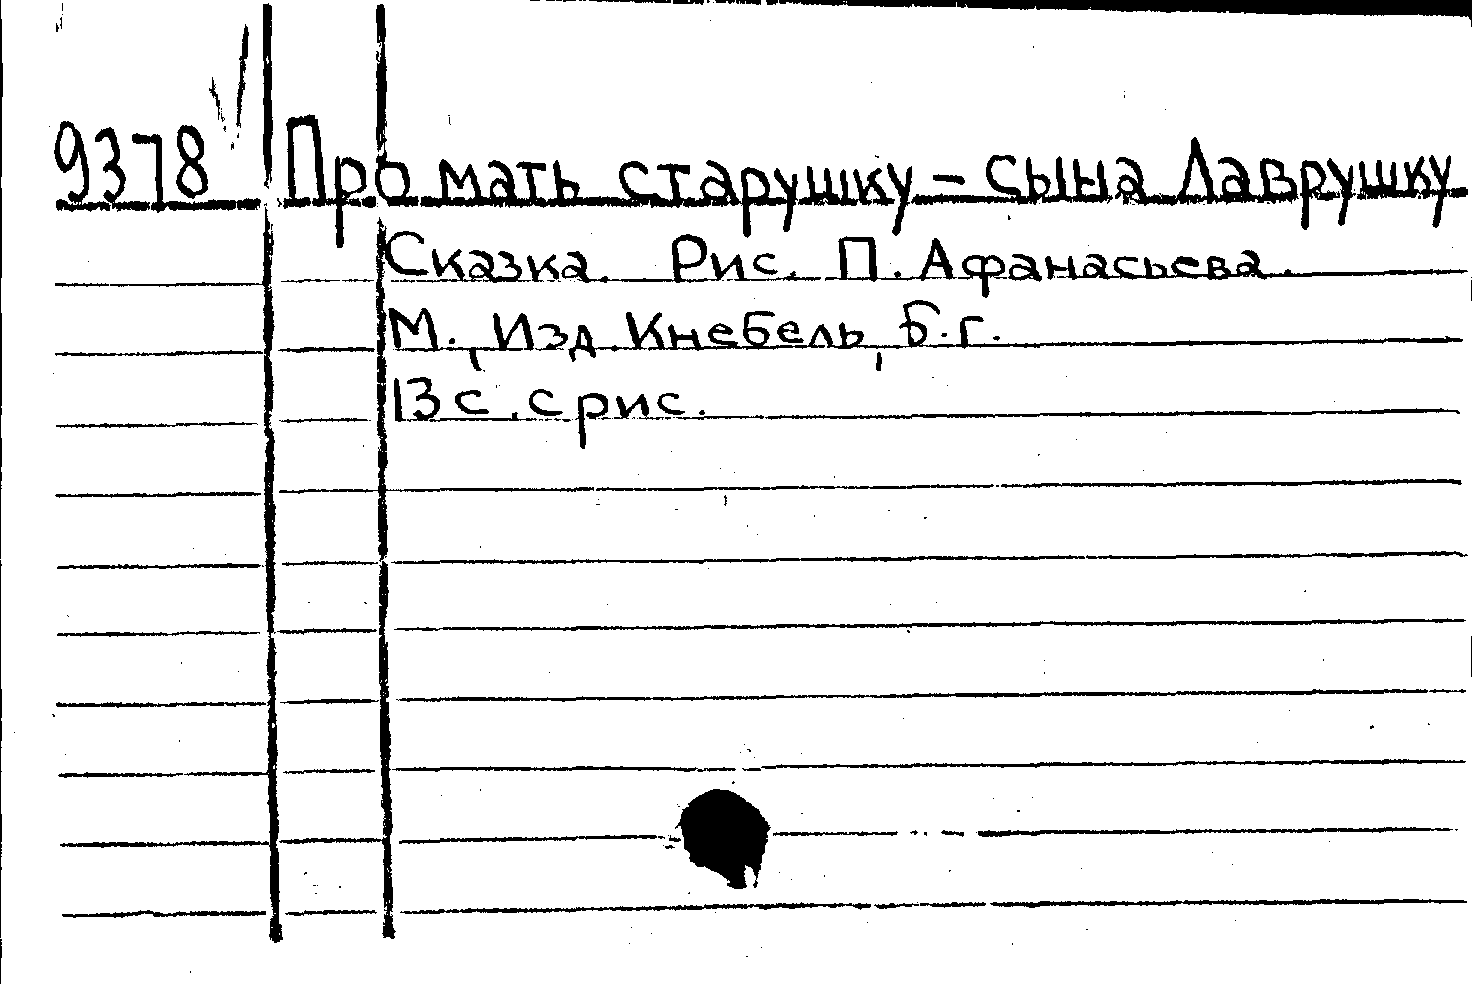 9378 Про мать старушку - сына Лаврушку
Сказка. Рис. П. Афанасьева.
М., Изд. Кнебель, б.г.
13 с. с рис.